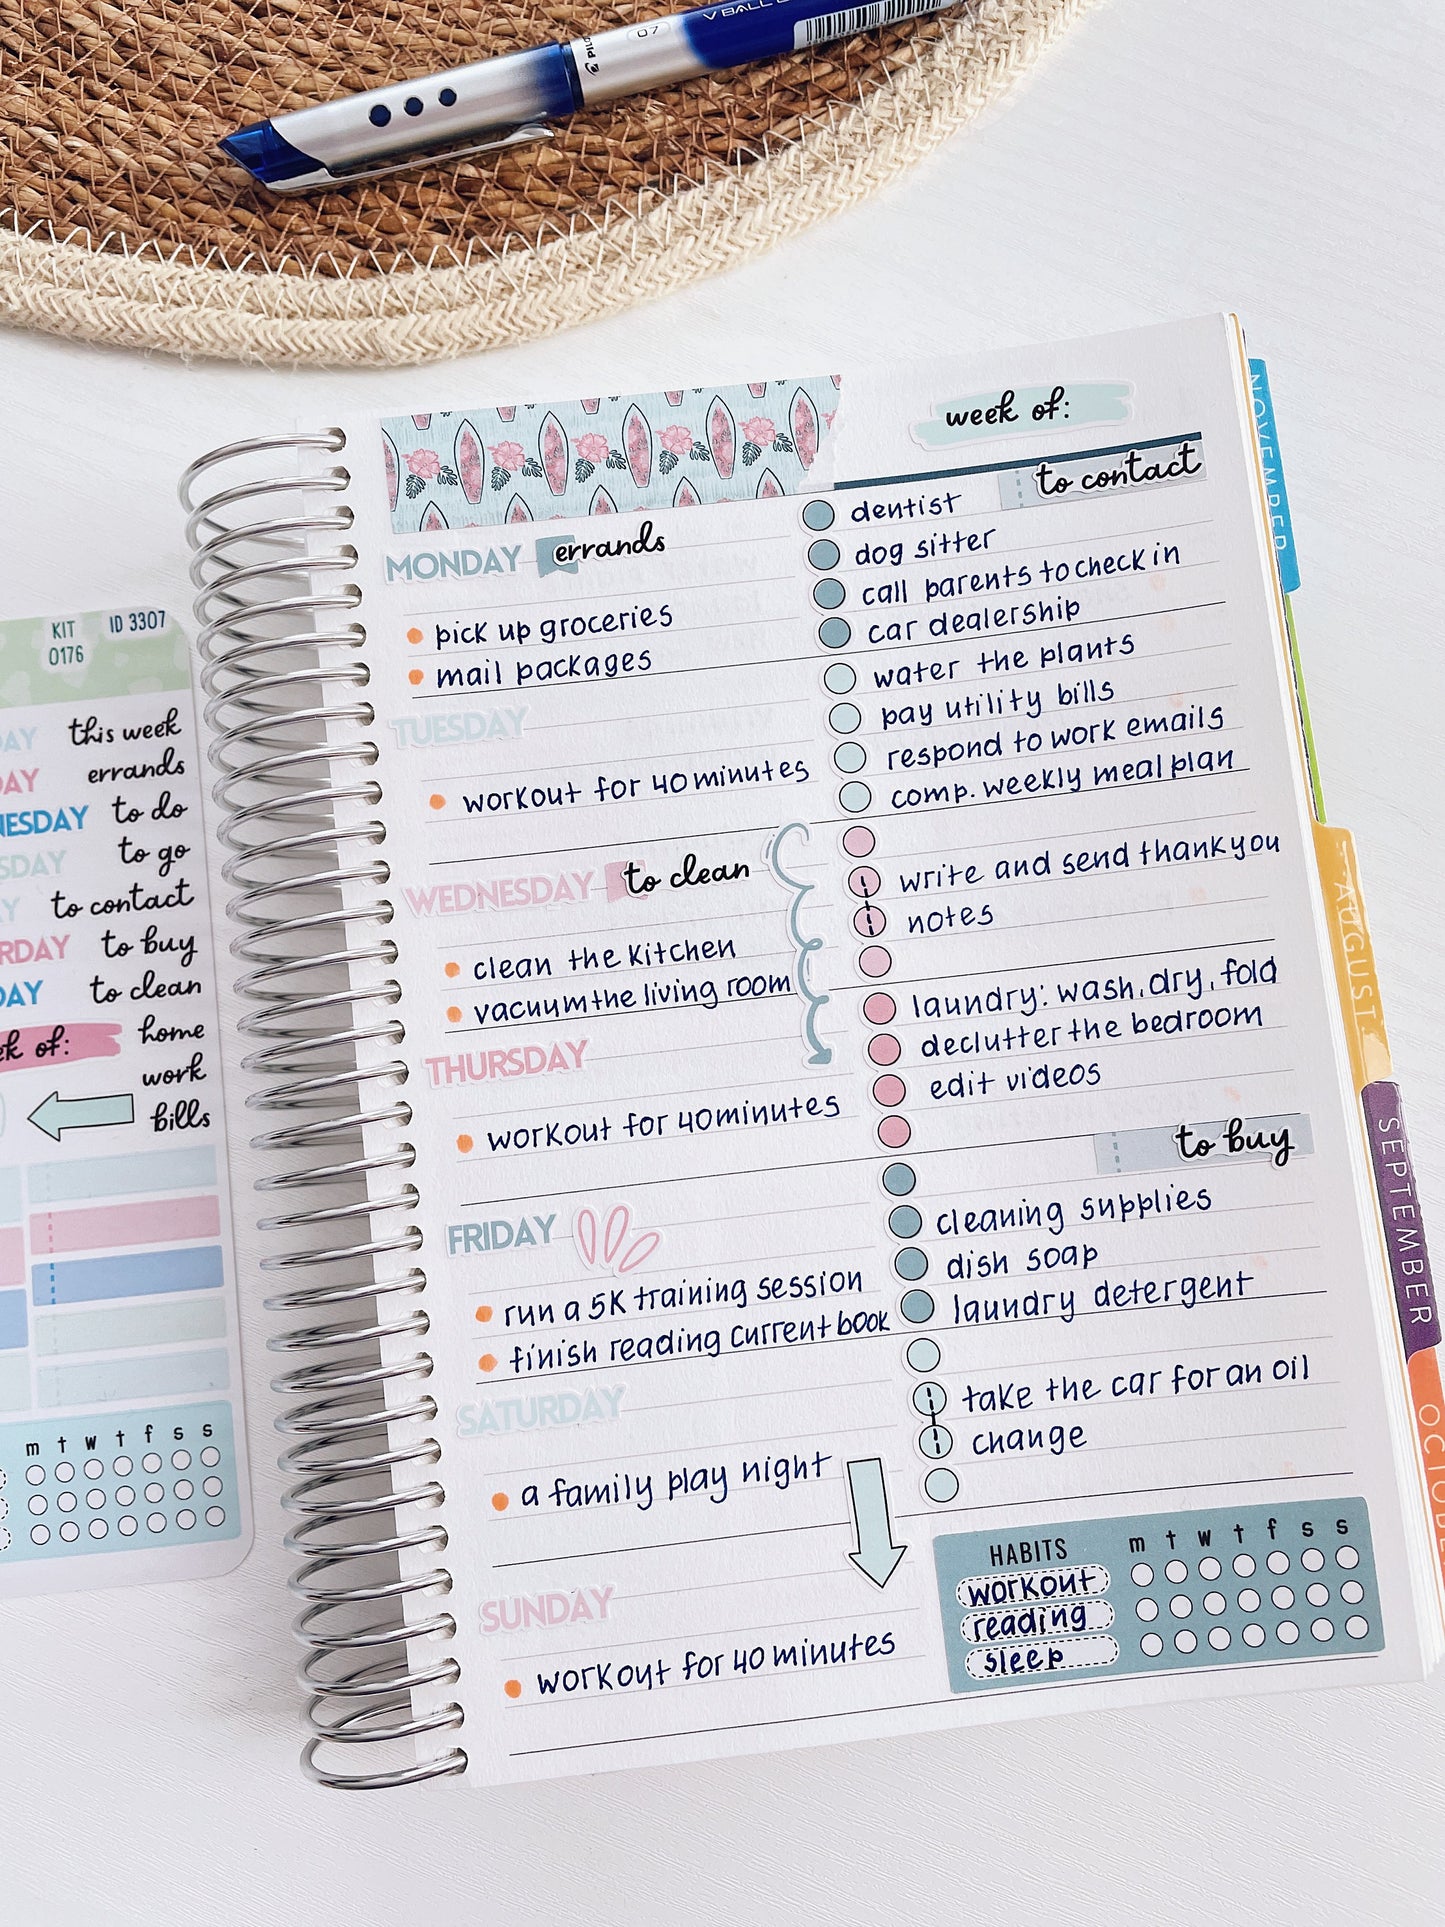 V BALL
07
PILO
week of:
to contact
dentist
dog sitter
call parents to check in
car dealership
water the plants
pay utility bills
respond to work emails
comp. weekly meal plan
write and send thank you
notes
laundry: wash, dry, fold
declutter the bedroom
edit videos
to buy
cleaning supplies
dish soap
laundry detergent
take the car for an oil
change
MONDAY errands
pick up groceries
mail packages
TUESDAY
workout for 40 minutes
WEDNESDAY to clean
clean the kitchen
vacuum the living room
THURSDAY
workout for 40 minutes
FRIDAY
run a 5K training session
finish reading current book
SATURDAY
a family play night
SUNDAY
workout for 40 minutes
HABITS m t w t f s s
workout
reading
sleep
KIT ID 3307
0176
AY this week
DAY errands
NESDAY to do
SDAY to go
Y to contact
RDAY to buy
DAY to clean
ek of: home
work
bills
m t w t f s s
NOVEMBER
AUGUST
SEPTEMBER
OCTOBE